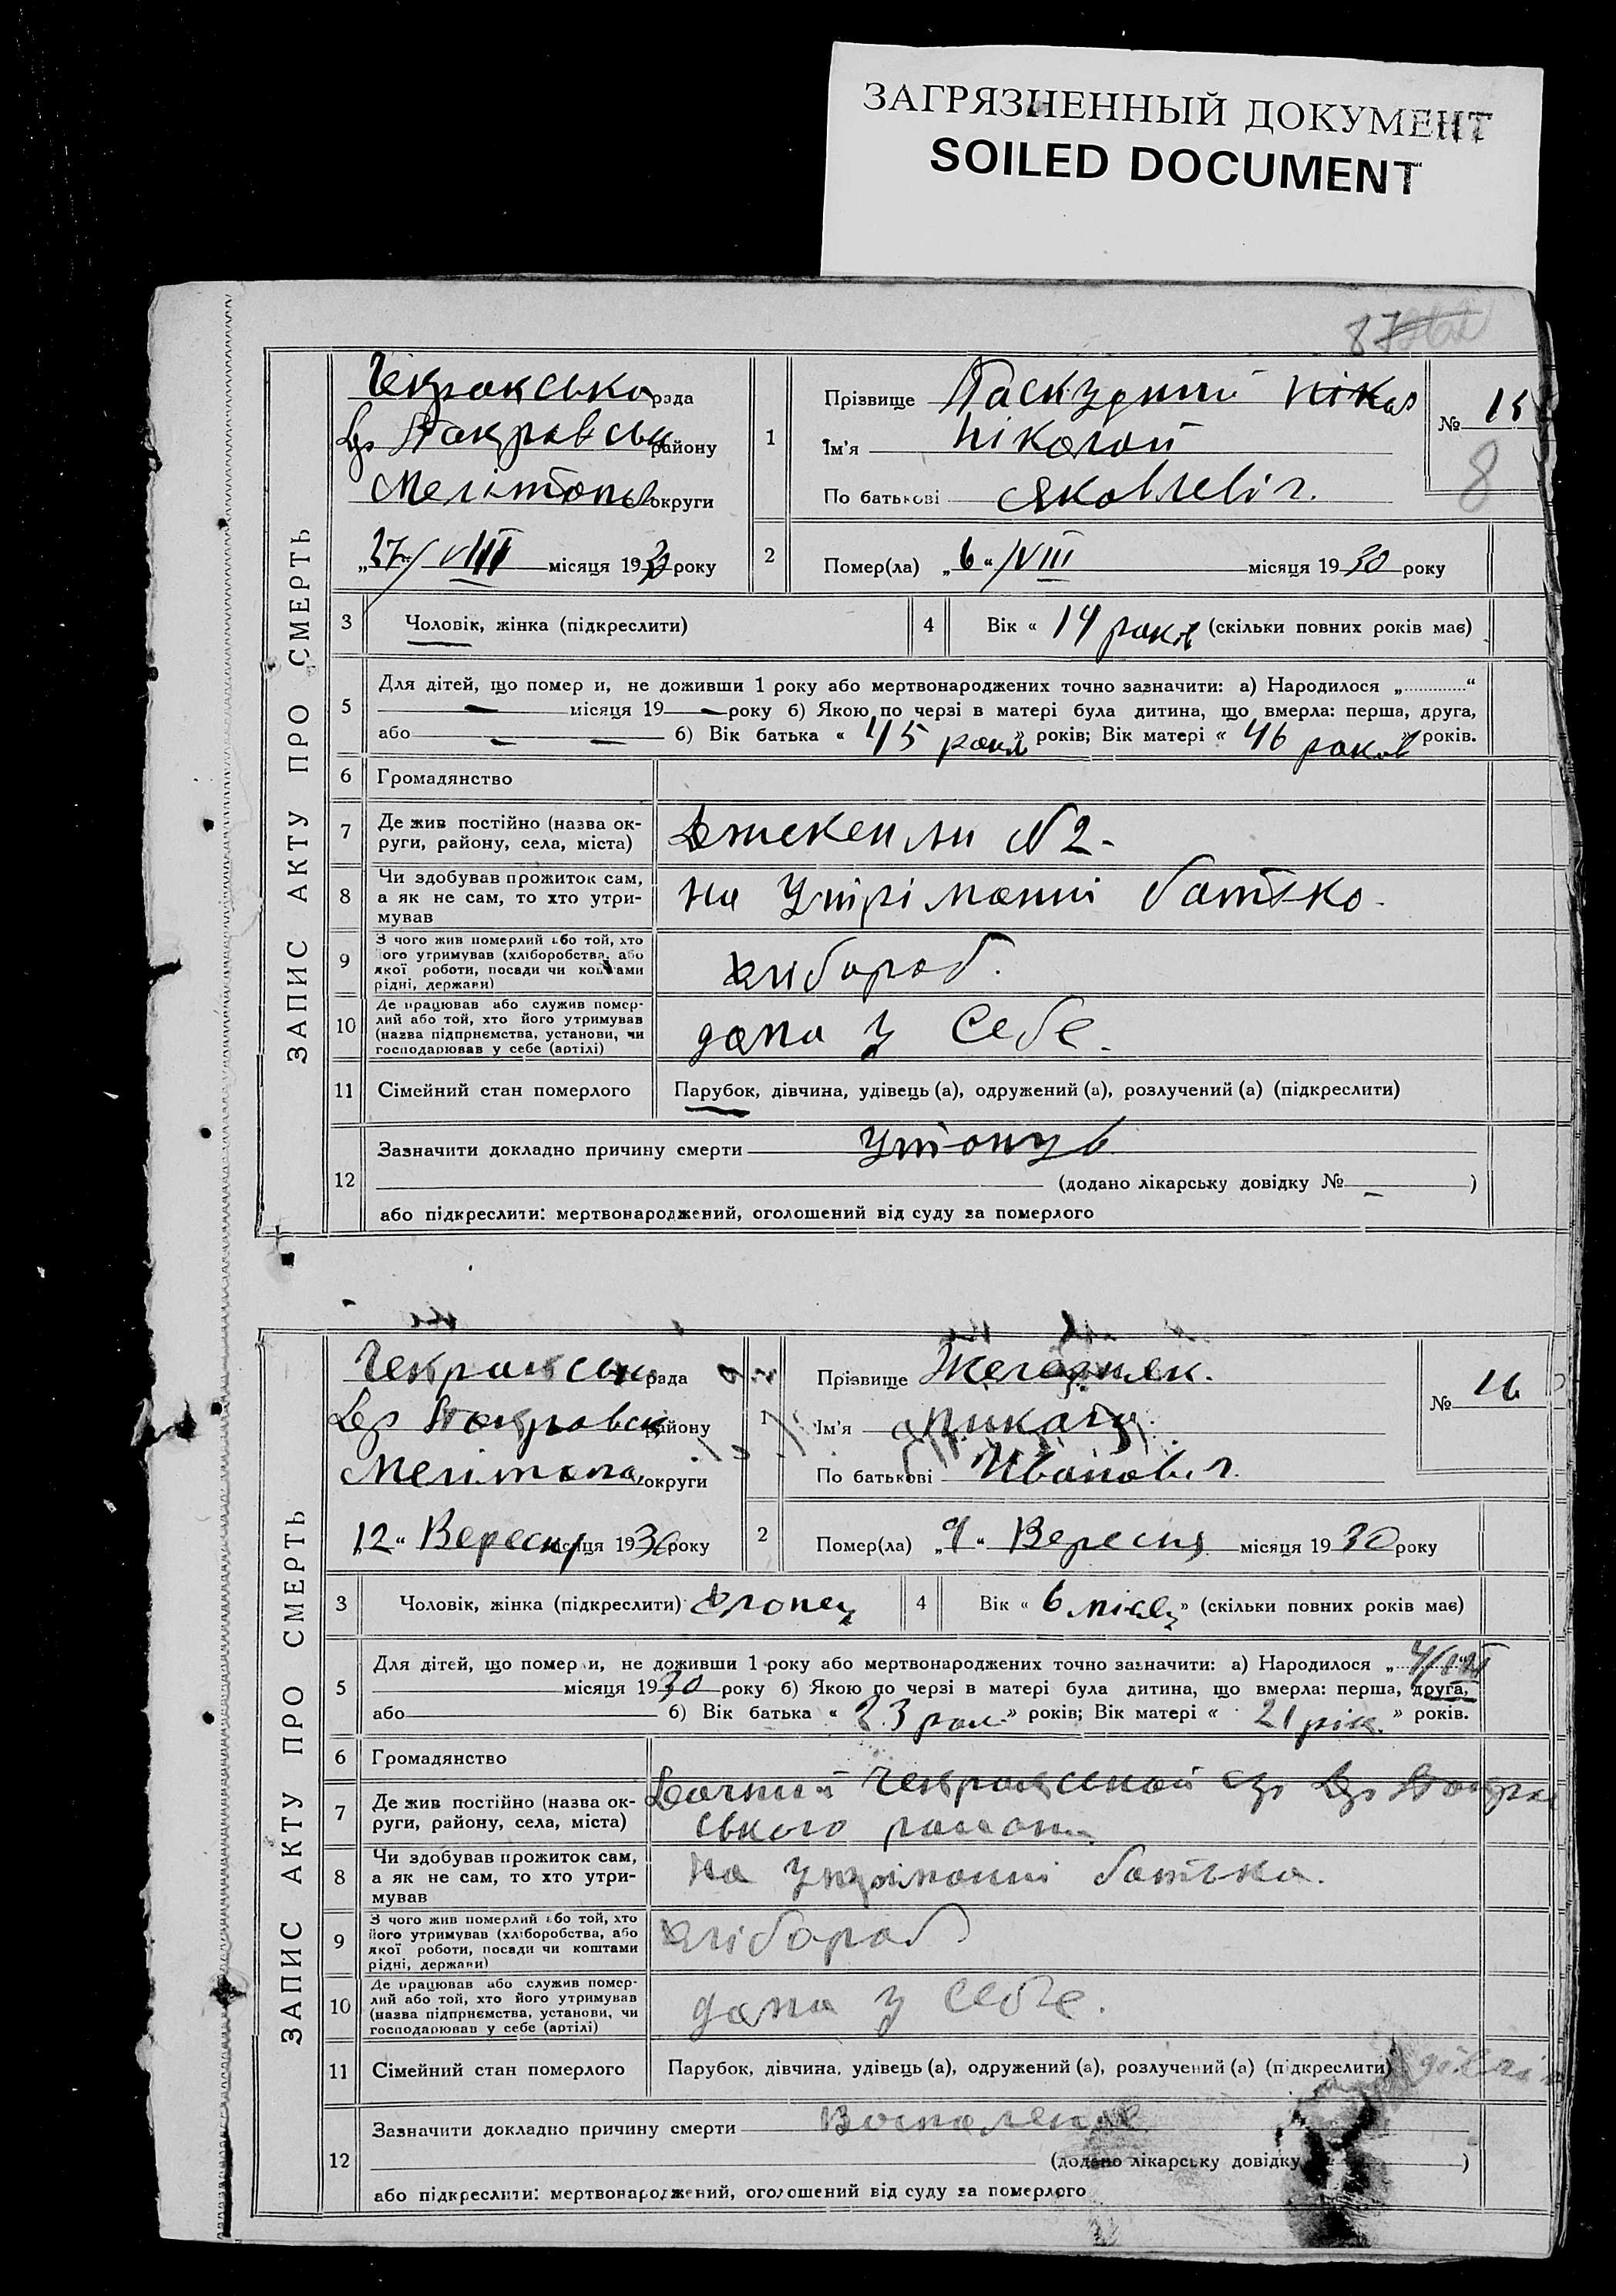 ЗАГРЯЗНЕННЫЙ ДОКУМЕНТ
SOILED DOCUMENT
87
ЗАПИС АКТУ ПРО СМЕРТЬ
рада
району
округи
"27" VIII місяця 1930 року
1
Прізвище Паскудний
Ім'я Ніколай
По батькові Яковлевіч.
№ 15
8
2
Помер(ла) "6" VIII місяця 1930 року
3 Чоловік, жінка (підкреслити)
4 Вік « 14 роков (скільки повних років має)
5
Для дітей, що помер и, не доживши 1 року або мертвонароджених точно зазначити: а) Народилося „............“
місяця 19 року б) Якою по черзі в матері була дитина, що вмерла: перша, друга,
або б) Вік батька « 45 роков » років; Вік матері « 46 роков » років.
6 Громадянство
7 Де жив постійно (назва ок-
руги, району, села, міста)
№ 2-
8 Чи здобував прожиток сам,
а як не сам, то хто утри-
мував
на утріманні батько-
9 З чого жив померлий або той, хто
його утримував (хліборобства, або
якої роботи, посади чи коштами
рідні, держави)
хлібороб.
10 Де працював або служив помер-
лий або той, хто його утримував
(назва підприємства, установи, чи
господарював у себе (артілі)
дома у себе.
11 Сімейний стан померлого
Парубок, дівчина, удівець (а), одружений (а), розлучений (а) (підкреслити)
12
Зазначити докладно причину смерти утонув
(додано лікарську довідку № )
або підкреслити: мертвонароджений, оголошений від суду за померлого
ЗАПИС АКТУ ПРО СМЕРТЬ
рада
району
округи
"12" Вересня місяця 1930 року
1
Прізвище
Ім'я
По батькові Иванович.
№ 16
2
Помер(ла) "9" Вересня місяця 1930 року
3 Чоловік, жінка (підкреслити) хлопец
4 Вік « 6 місяц » (скільки повних років має)
5
Для дітей, що помер и, не доживши 1 року або мертвонароджених точно зазначити: а) Народилося „
місяця 1930 року б) Якою по черзі в матері була дитина, що вмерла: перша, друга,
або б) Вік батька « 23 рок. » років; Вік матері « 21 рік. » років.
6 Громадянство
7 Де жив постійно (назва ок-
руги, району, села, міста)
8 Чи здобував прожиток сам,
а як не сам, то хто утри-
мував
на утріманні батька.
9 З чого жив померлий або той, хто
його утримував (хліборобства, або
якої роботи, посади чи коштами
рідні, держави)
хлібороб
10 Де працював або служив помер-
лий або той, хто його утримував
(назва підприємства, установи, чи
господарював у себе (артілі)
дома у себе.
11 Сімейний стан померлого
Парубок, дівчина, удівець (а), одружений (а), розлучений (а) (підкреслити)
12
Зазначити докладно причину смерти Воспаление
(додано лікарську довідку )
або підкреслити: мертвонароджений, оголошений від суду за померлого